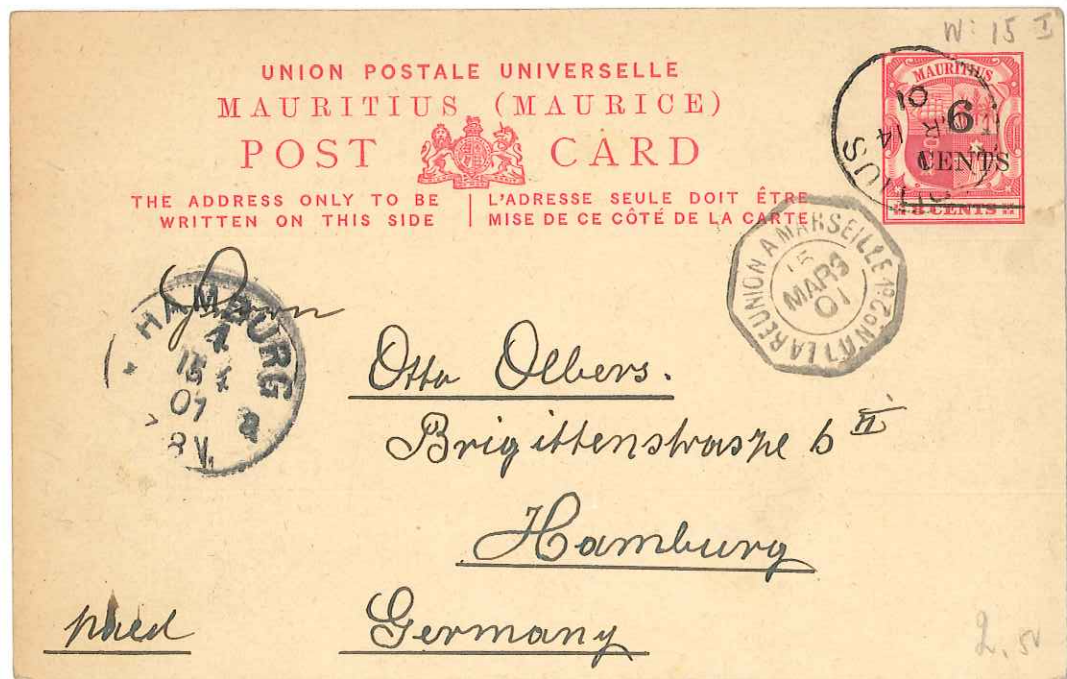 W: 15 I
UNION POSTALE UNIVERSELLE
MAURITIUS (MAURICE)
POST CARD
THE ADDRESS ONLY TO BE
WRITTEN ON THIS SIDE
L'ADRESSE SEULE DOIT ÊTRE
MISE DE CE CÔTÉ DE LA CARTE
MAURITIUS
6
CENTS
8 CENTS
14
01
LA REUNION A MARSEILLE
15
MARS
01
HAMBURG
4
01
8 V.
Herrn
Otto Olbers.
Brigittenstrasse 6 II
Hamburg
Germany
2.50